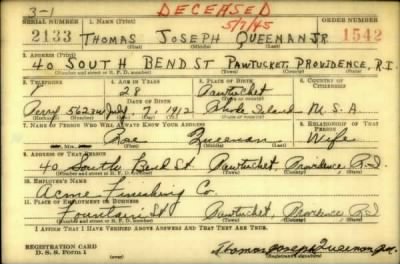 3-1 DECEASED
SERIAL NUMBER 1. NAME (Print) 5/7/45 ORDER NUMBER
2133 THOMAS JOSEPH QUEENAN JR 1542
(First) (Middle) (Last)
2. ADDRESS (Print)
40 SOUTH BEND ST PAWTUCKET, PROVIDENCE, R.I.
(Number and street or R. F. D. number) (Town) (County) (State)
3. TELEPHONE 4. AGE IN YEARS 5. PLACE OF BIRTH 6. COUNTRY OF CITIZENSHIP
28 Pawtucket
DATE OF BIRTH (Town or county)
Perry 5623W July 7, 1912 Rhode Island U.S.A
(Exchange) (Number) (Mo.) (Day) (Yr.) (State or country)
7. NAME OF PERSON WHO WILL ALWAYS KNOW YOUR ADDRESS 8. RELATIONSHIP OF THAT PERSON
Rose Queenan Wife
(First) (Middle) (Last)
9. ADDRESS OF THAT PERSON
40 South Bend St. Pawtucket, Providence R.I.
(Number and street or R. F. D. number) (Town) (County) (State)
10. EMPLOYER'S NAME
Acme Finishing Co.
11. PLACE OF EMPLOYMENT OR BUSINESS
Fountain St Pawtucket, Providence R.I.
(Number and street or R. F. D. number) (Town) (County) (State)
I AFFIRM THAT I HAVE VERIFIED ABOVE ANSWERS AND THAT THEY ARE TRUE.
REGISTRATION CARD
D. S. S. Form 1 Thomas Joseph Queenan Jr.